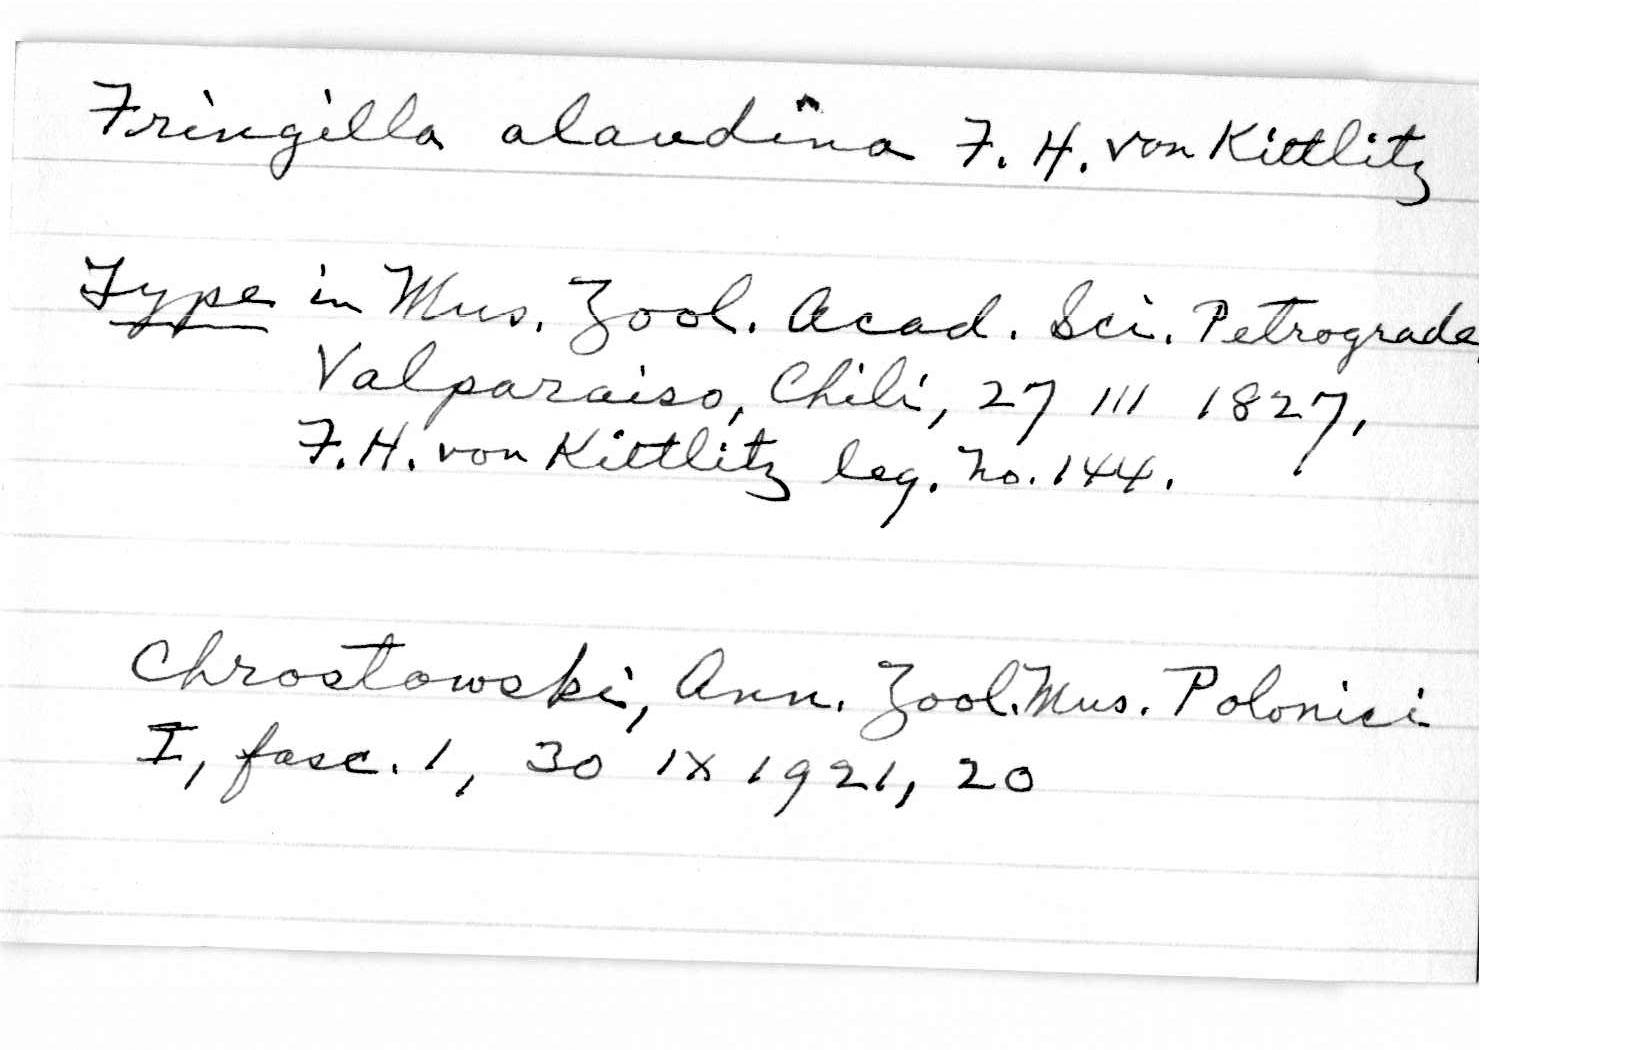 Fringilla alaudina F. H. von Kittlitz
Type in Mus. Zool. Acad. Sci. Petrograde,
Valparaiso, Chili, 27 III 1827,
F. H. von Kittlitz leg. No. 144.
Chrostowski, Ann. Zool. Mus. Polonici
I, fasc. 1, 30 IX 1921, 20